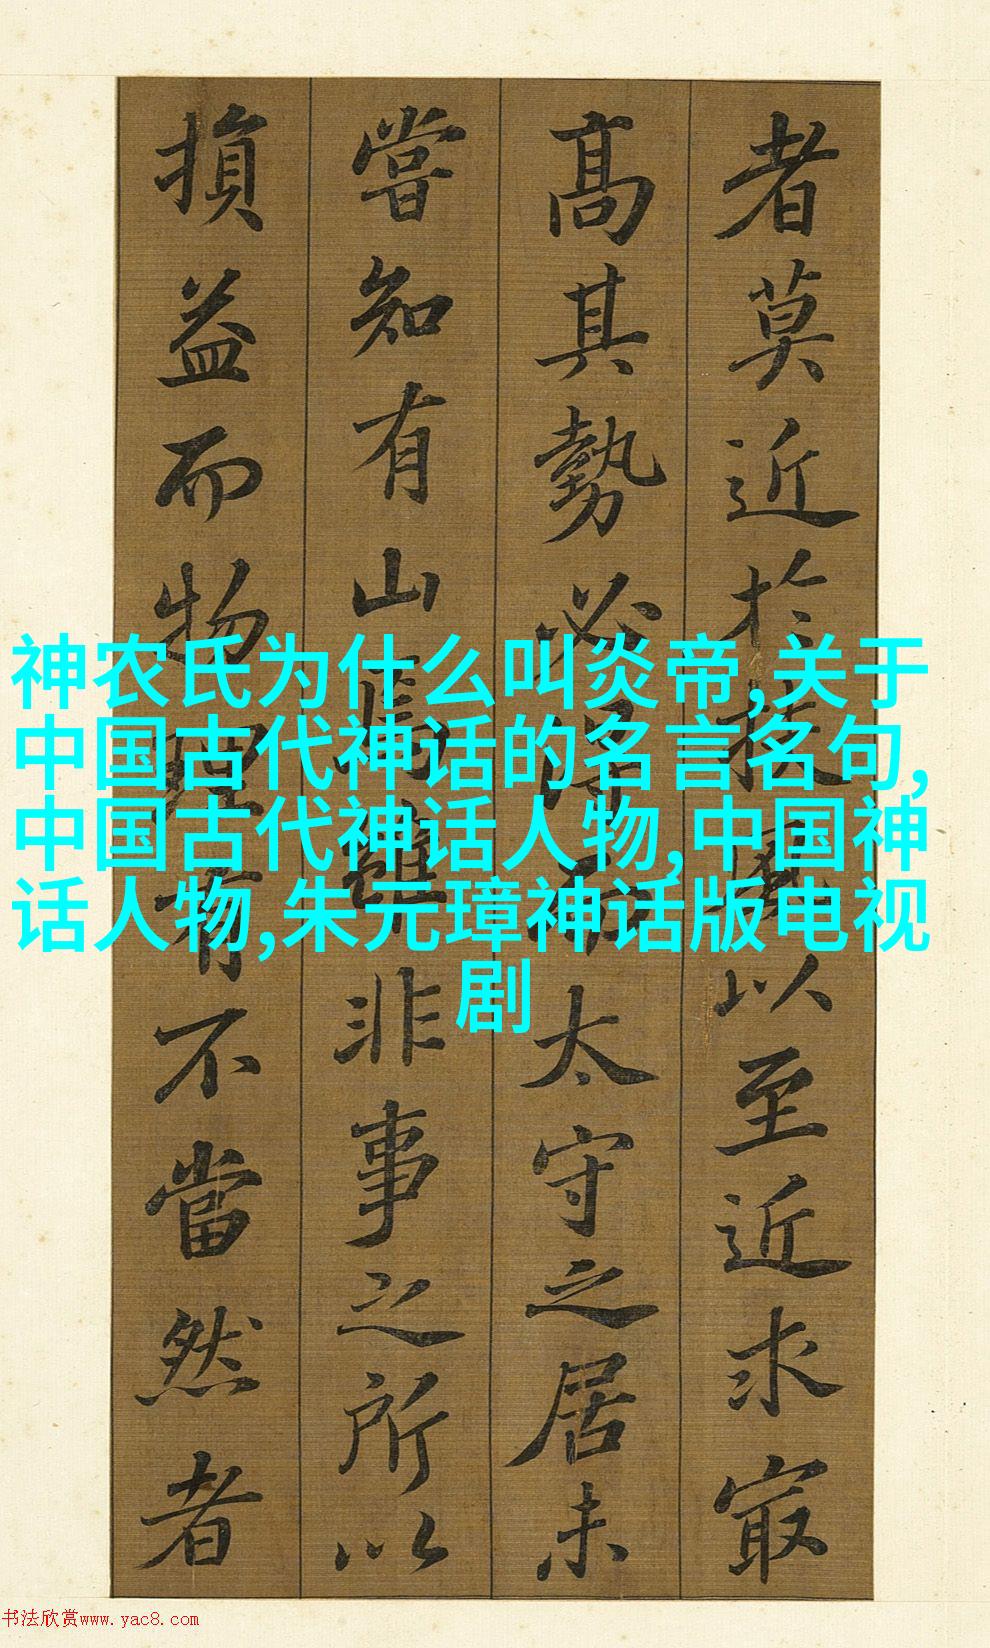 者莫近於扶風以至近求㝡
髙其勢必得而太守之居未
嘗知有山焉雖非事之所以
損益而物理有不當然者
神农氏为什么叫炎帝,关于
中国古代神话的名言名句,
中国古代神话人物,中国神
话人物,朱元璋神话版电视
剧
书法欣赏www.yac8.com